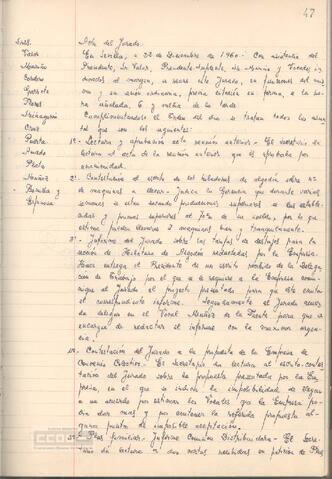 47
Sres.
Valor
Mariño
Cordero
Garrote
Flores
Cruz
Puerta
Jurado
Prieto
Muñoz
Bonilla y
Espinosa
Acta del Jurado.
En Sevilla, a 22 de Diciembre de 1960.- Con asistencia del
Presidente, Sr. Valor, Presidente Suplente, Sr. Mariño y Vocales, in-
dicados al margen, se reune este Jurado, en funciones del mis-
mo y en sesión ordinaria, previa citación en forma, a la ho-
ra señalada, 6 y vuelta de la tarde.
Cumplimentándose el Orden del día se tratan todos los asun-
tos que son los siguientes:
1º- Lectura y aprobación acta reunión anterior.- El Secretario da
lectura al acta de la reunión anterior que es aprobada por
unanimidad.
2º- Contestación al escrito de las hiladoras de algodón sobre nº
de máquinas a llevar.- Indica la Gerencia que durante varias
semanas se están sacando producciones superiores a las estable-
cidas y primas superiores al de la escala, por lo que
estima pueden llevarse 2 máquinas bien y tranquilamente.
3º- Informe del Jurado sobre las tarifas de destajos para la
sección de Hilatura de Algodón redactadas por la Empresa.
Hace entrega el Presidente de un escrito recibido de la Delega-
ción de Trabajo por el que se le requiere a la Empresa comu-
nique al Jurado el proyecto presentado para que este emita
el correspondiente informe. Seguidamente el Jurado acuer-
da delegar en el Vocal Muñoz de la Fuente para que se
encargue de redactar el informe con la máxima urgen-
cia.
4º- Contestación del Jurado a la propuesta de la Empresa de
Convenio Colectivo. El Secretario da lectura al escrito contes-
tación del Jurado sobre la propuesta presentada por la Em-
presa, en el que se indica la imposibilidad de llegar
a un acuerdo por estimar los Vocales que la Empresa po-
día dar más y por contener la referida propuesta al-
guna punta de imposible aceptación.
5º- Plus familiar. Informe Comisión Distribuidora.- El Secre-
tario da lectura a dos cartas recibidas en petición de Plus
CCOO